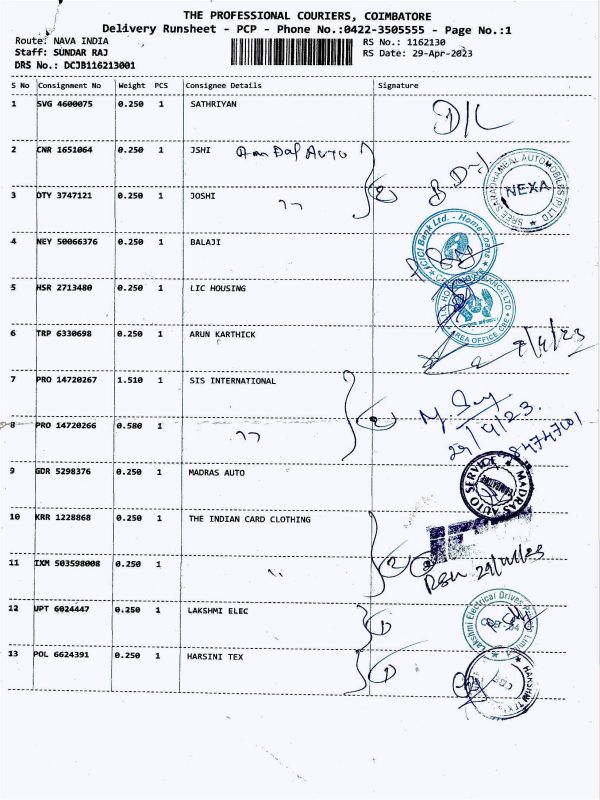 THE PROFESSIONAL COURIERS, COIMBATORE
Delivery Runsheet - PCP - Phone No.:0422-3505555 - Page No.:1
Route: NAVA INDIA RS No.: 1162130
Staff: SUNDAR RAJ RS Date: 29-Apr-2023
DRS No.: DCJB116213001
S No Consignment No Weight PCS Consignee Details Signature
1 SVG 4600075 0.250 1 SATHRIYAN D/L
2 CNR 1651064 0.250 1 JSHI Auto
SREE SARADHAMBAL AUTOMOBILES (P) LTD
NEXA
3 DTY 3747121 0.250 1 JOSHI 2
4 NEY 50066376 0.250 1 BALAJI
ICICI Bank Ltd. - Home Loans
5 HSR 2713480 0.250 1 LIC HOUSING
AREA OFFICE CBE
6 TRP 6330698 0.250 1 ARUN KARTHICK
7 PRO 14720267 1.510 1 SIS INTERNATIONAL
8 PRO 14720266 0.580 1 2
29/4/23.
9 GDR 5298376 0.250 1 MADRAS AUTO
MADRAS AUTO SERVICE
COIMBATORE
10 KRR 1228868 0.250 1 THE INDIAN CARD CLOTHING
11 IXM 503598008 0.250 1 2
12 UPT 6024447 0.250 1 LAKSHMI ELEC 1
Lakshmi Electrical Drives Private Limited
13 POL 6624391 0.250 1 HARSINI TEX 1
HARSHINI TEX